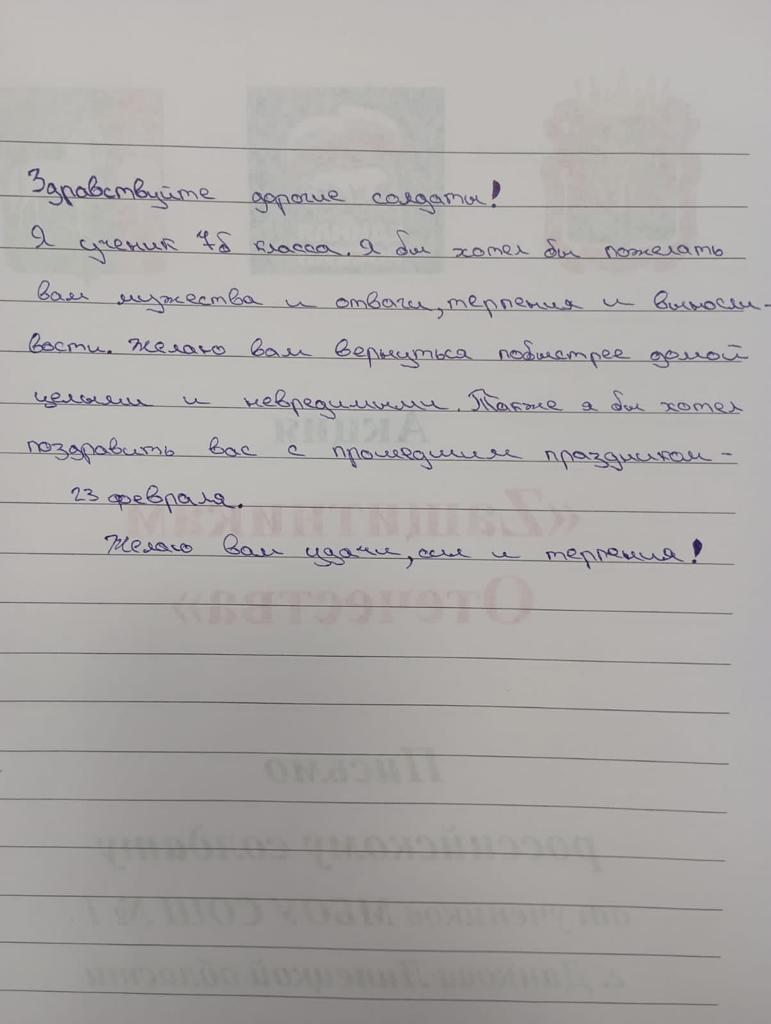 Здравствуйте дорогие солдаты!
Я ученик 7б класса. Я бы хотел бы пожелать
вам мужества и отваги, терпения и выносли-
вости. Желаю вам вернуться побыстрее домой
целыми и невредимыми. Также я бы хотел
поздравить вас с прошедшим праздником -
23 февраля.
Желаю вам удачи, сил и терпения!
Акция
«Zащитникам
Отечества»
Письмо
российскому солдату
от учеников МБОУ СОШ № 1
г. Данкова Липецкой области